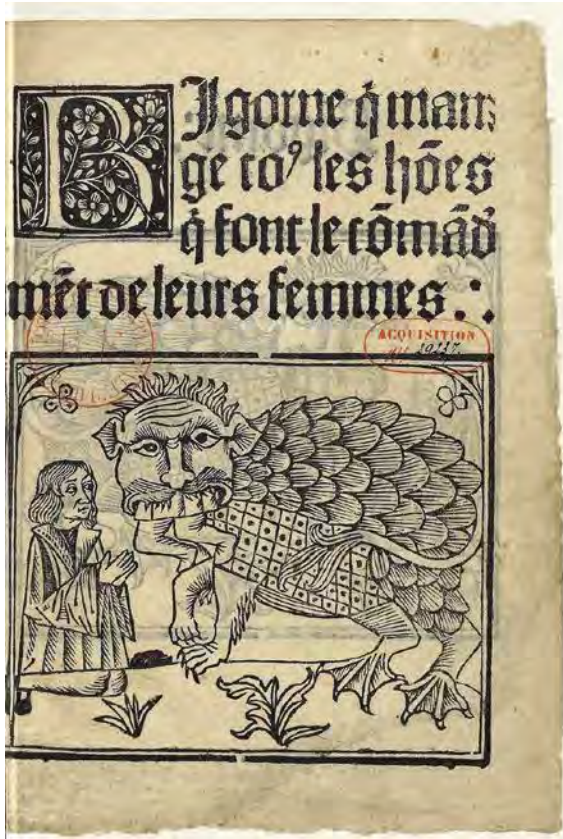 BIgorne q̃ man⸗
ge to⁹ les hões
q̃ font le cõmãd
mẽt de leurs femmes .·.
ACQUISITION